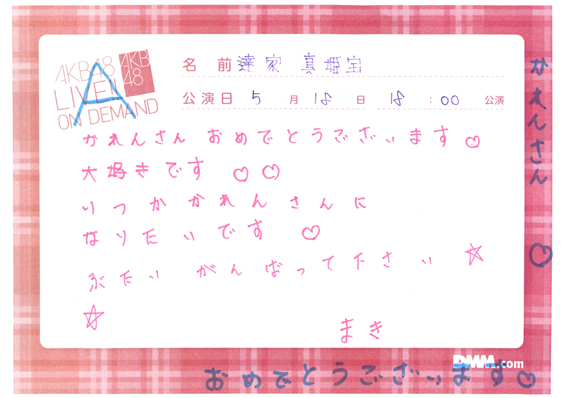 AKB48
LIVE!!
ON DEMAND
A
AKB
48
名前 達家 真姫宝
公演日 5月18日 18:00 公演
かれんさん おめでとうございます♡
大好きです ♡♡
りつかかれんさんに
なりたいです ♡
ぶたい がんばって下さい ☆
☆
まき
かれんさん ♡
DMM.com
おめでとうございます♡